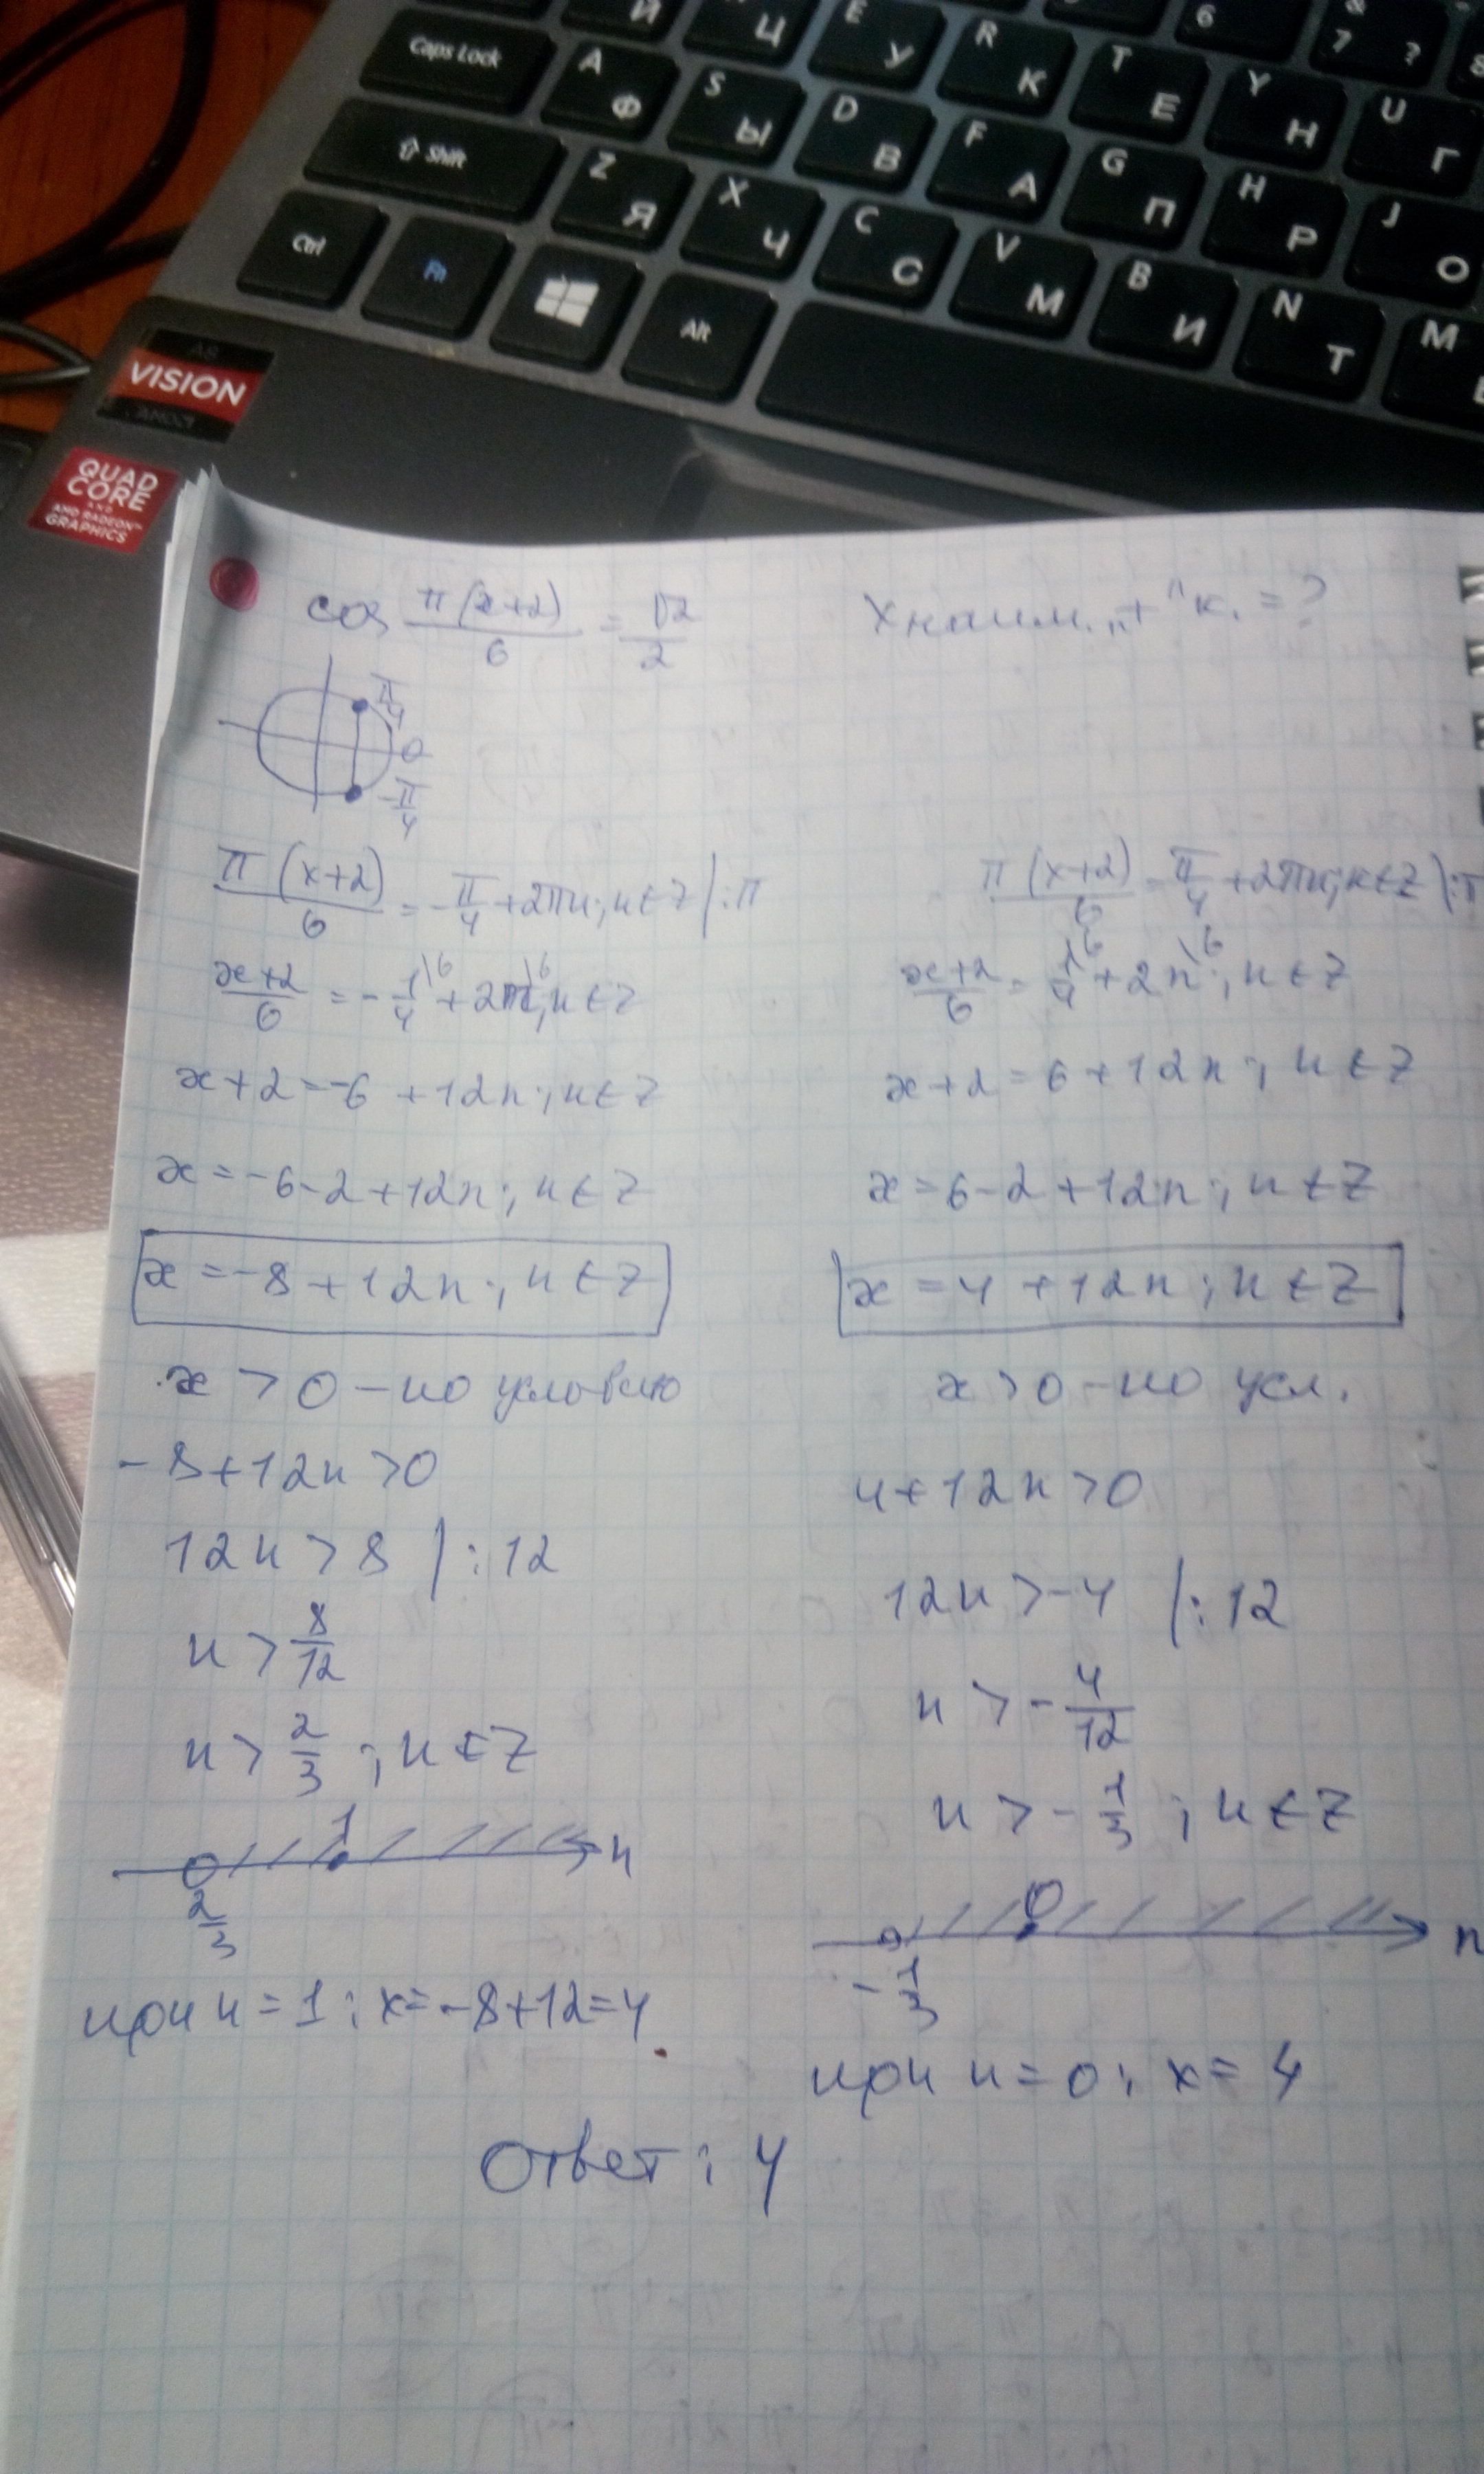 6 & 7 ?
Й Ц E У R К T Е Y Н U Г
Caps Lock A Ф S Ы D В F А G П H Р J О
⇧ Shift Z Я X Ч C С V М B И N Т M
Ctrl Fn Alt
A8
VISION
AMD
QUAD
CORE
AND
AMD RADEON™
GRAPHICS
cos π(x+2)/6 = √2/2
Xнаим. "+" к. = ?
π/4
0
-π/4
π(x+2)/6 = -π/4 + 2πn; n∈Z |:π
x+2/6 = -1/4 \6 + 2n \6; n∈Z
x+2 = -6 + 12n; n∈Z
x = -6-2+12n; n∈Z
x = -8+12n; n∈Z
x > 0 - по условию
-8+12n>0
12n > 8 |:12
n > 8/12
n > 2/3; n∈Z
1
n
2/3
при n=1: x=-8+12=4
π(x+2)/6 = π/4 + 2πn; n∈Z |:π
x+2/6 = 1/4 \6 + 2n \6; n∈Z
x+2 = 6+12n; n∈Z
x = 6-2+12n; n∈Z
x = 4+12n; n∈Z
x>0 - по усл.
4+12n>0
12n>-4 |:12
n > -4/12
n > -1/3; n∈Z
0
n
-1/3
при n=0: x=4
Ответ: 4